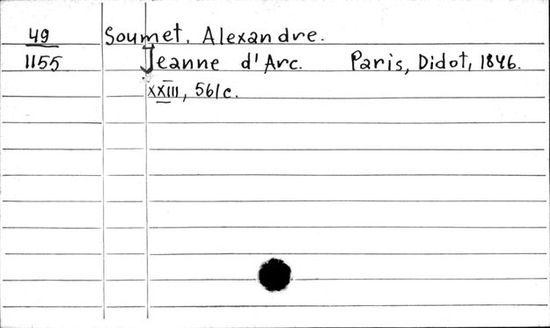 49 Soumet, Alexandre.
1155 Jeanne d'Arc. Paris, Didot, 1846.
XXIII, 561c.